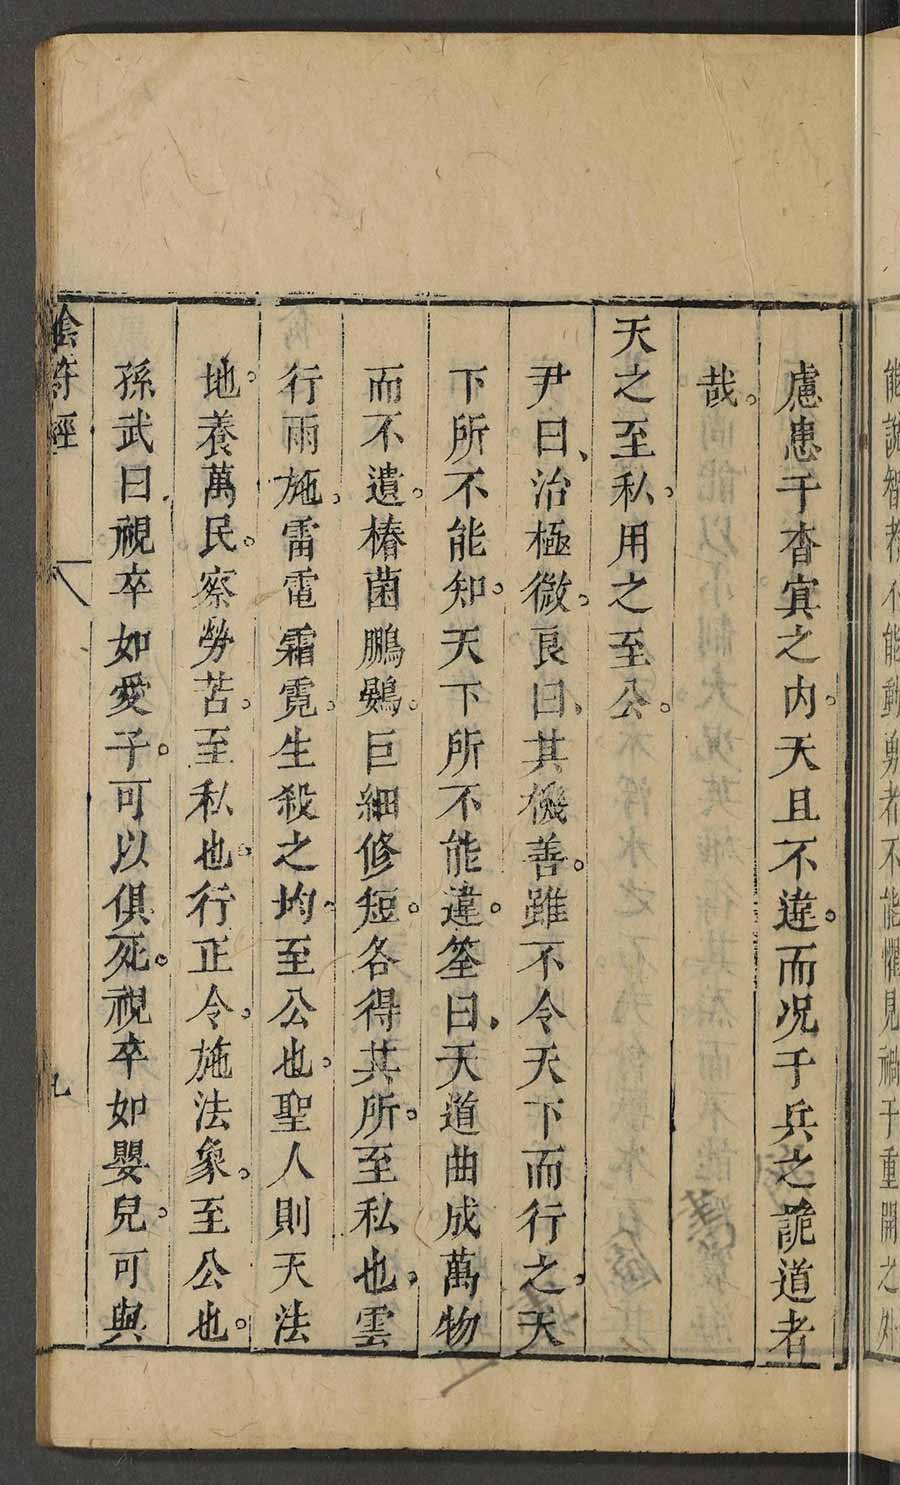 能說智者不能動勇者不能懼見禍于重開之外
慮患于杳冥之内。天且不違。而况于兵之詭道者
哉。
天之至私。用之至公。
尹曰、治極微。良曰、其機善。雖不令天下而行之。天
下所不能知。天下所不能違。筌曰。天道曲成萬物
而不遺。椿菌鵬鷃。巨細修短。各得其所。至私也。雲
行雨施。雷電霜霓。生殺之均。至公也。聖人則天法
地。養萬民。察勞苦。至私也。行正令。施法象。至公也。
孫武曰。視卒如愛子。可以俱死。視卒如嬰兒。可與
陰符經 八 九